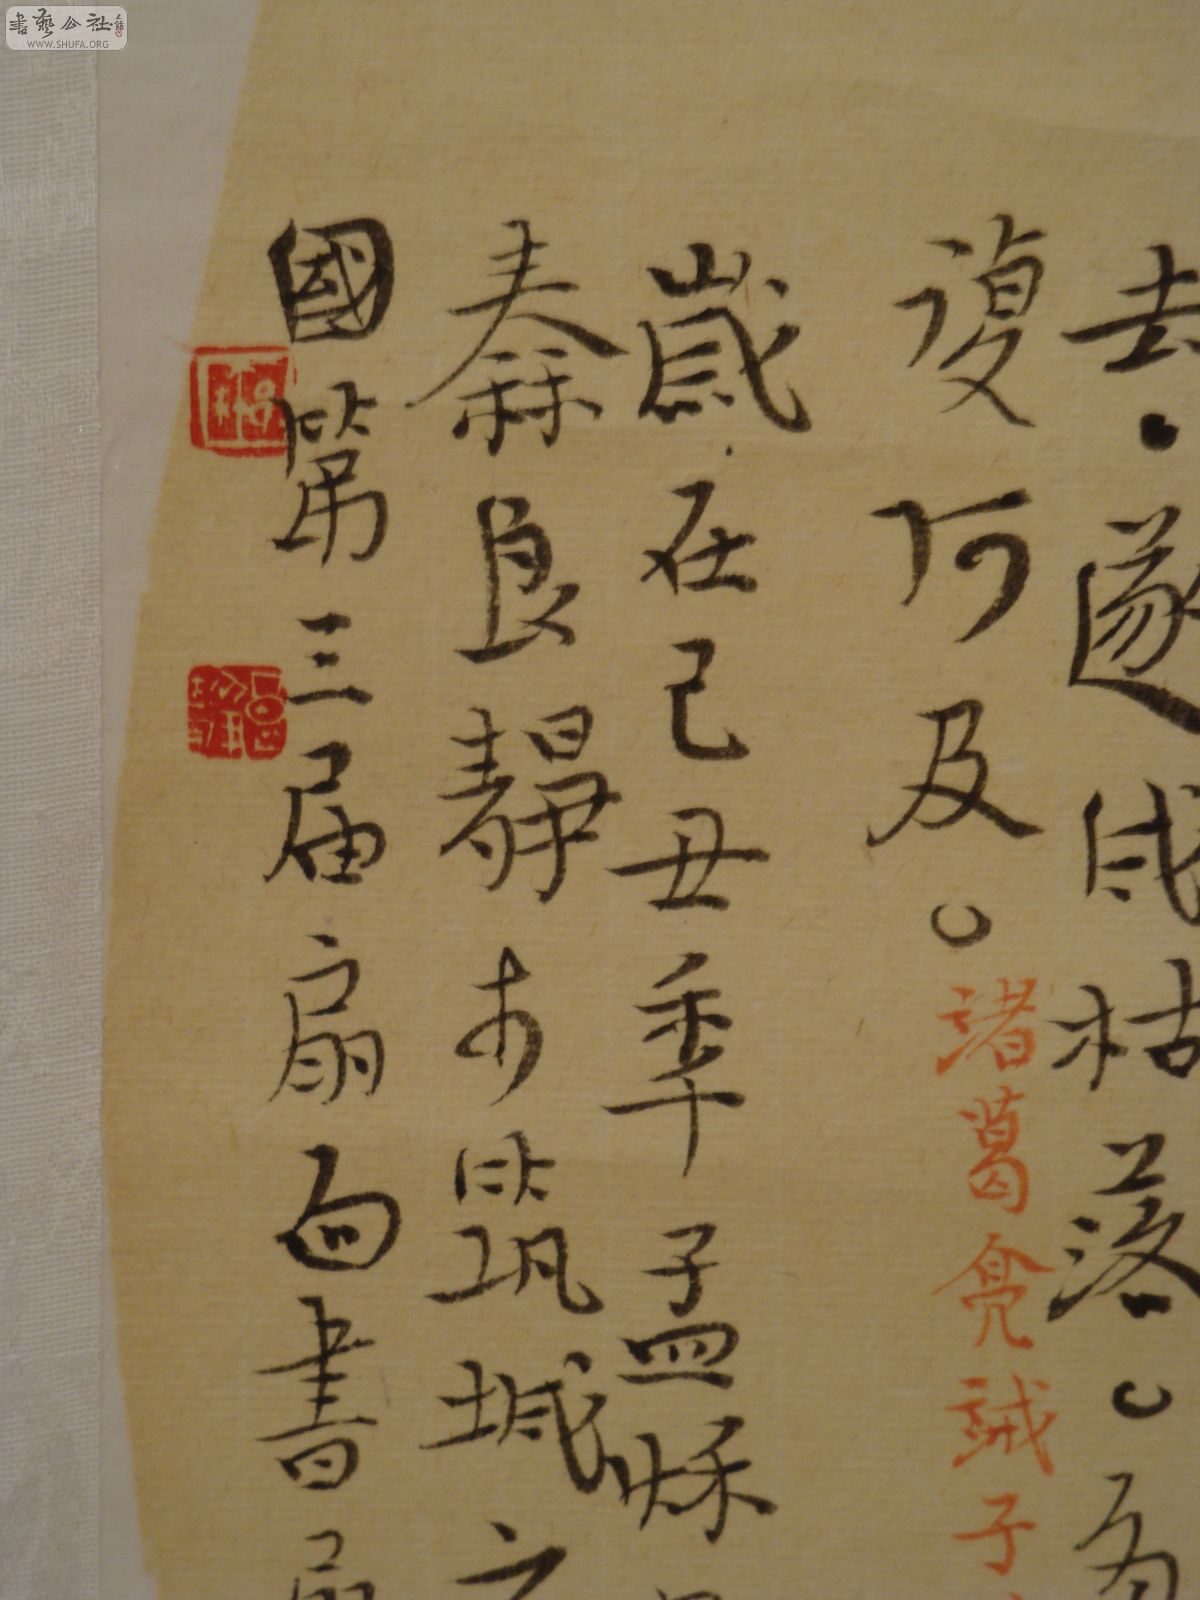 書藝公社
WWW.SHUFA.ORG
去、遂成枯落。多
復何及。諸葛亮誡子
歲在己丑秊孟秌
秦良靜于筑城之
國第三届扇面書